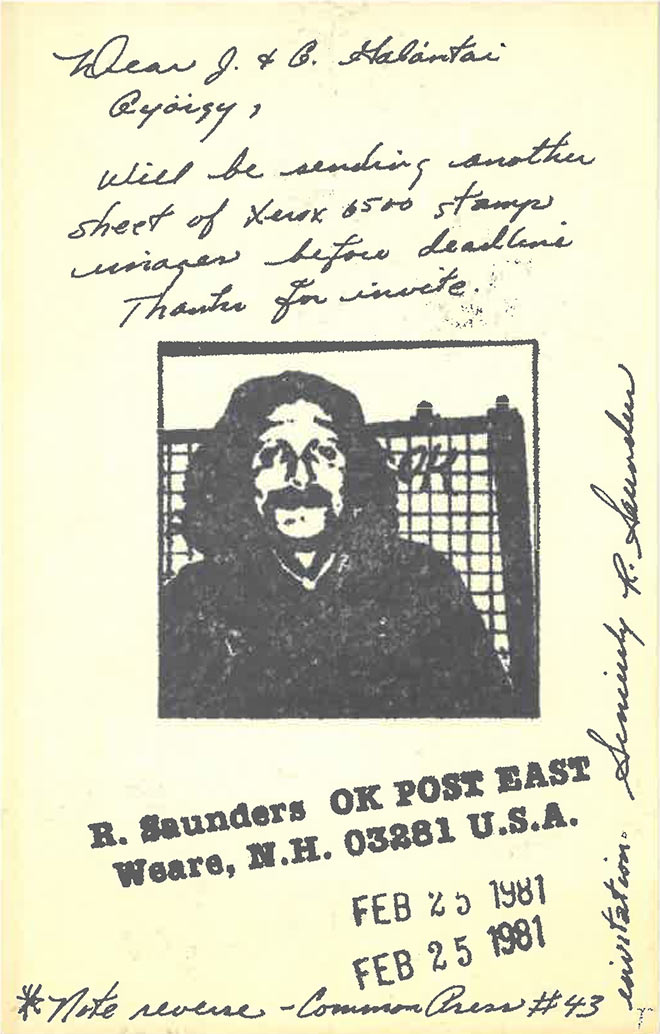 Dear J. & G. Galántai
György,
Will be sending another
sheet of Xerox 6500 stamp
images before deadline
Thanks for invite.
OK
R. Saunders OK POST EAST
Weare, N.H. 03281 U.S.A.
FEB 25 1981
FEB 25 1981
*Note reverse - Commonpress #43
invitation. Sincerely R. Saunders